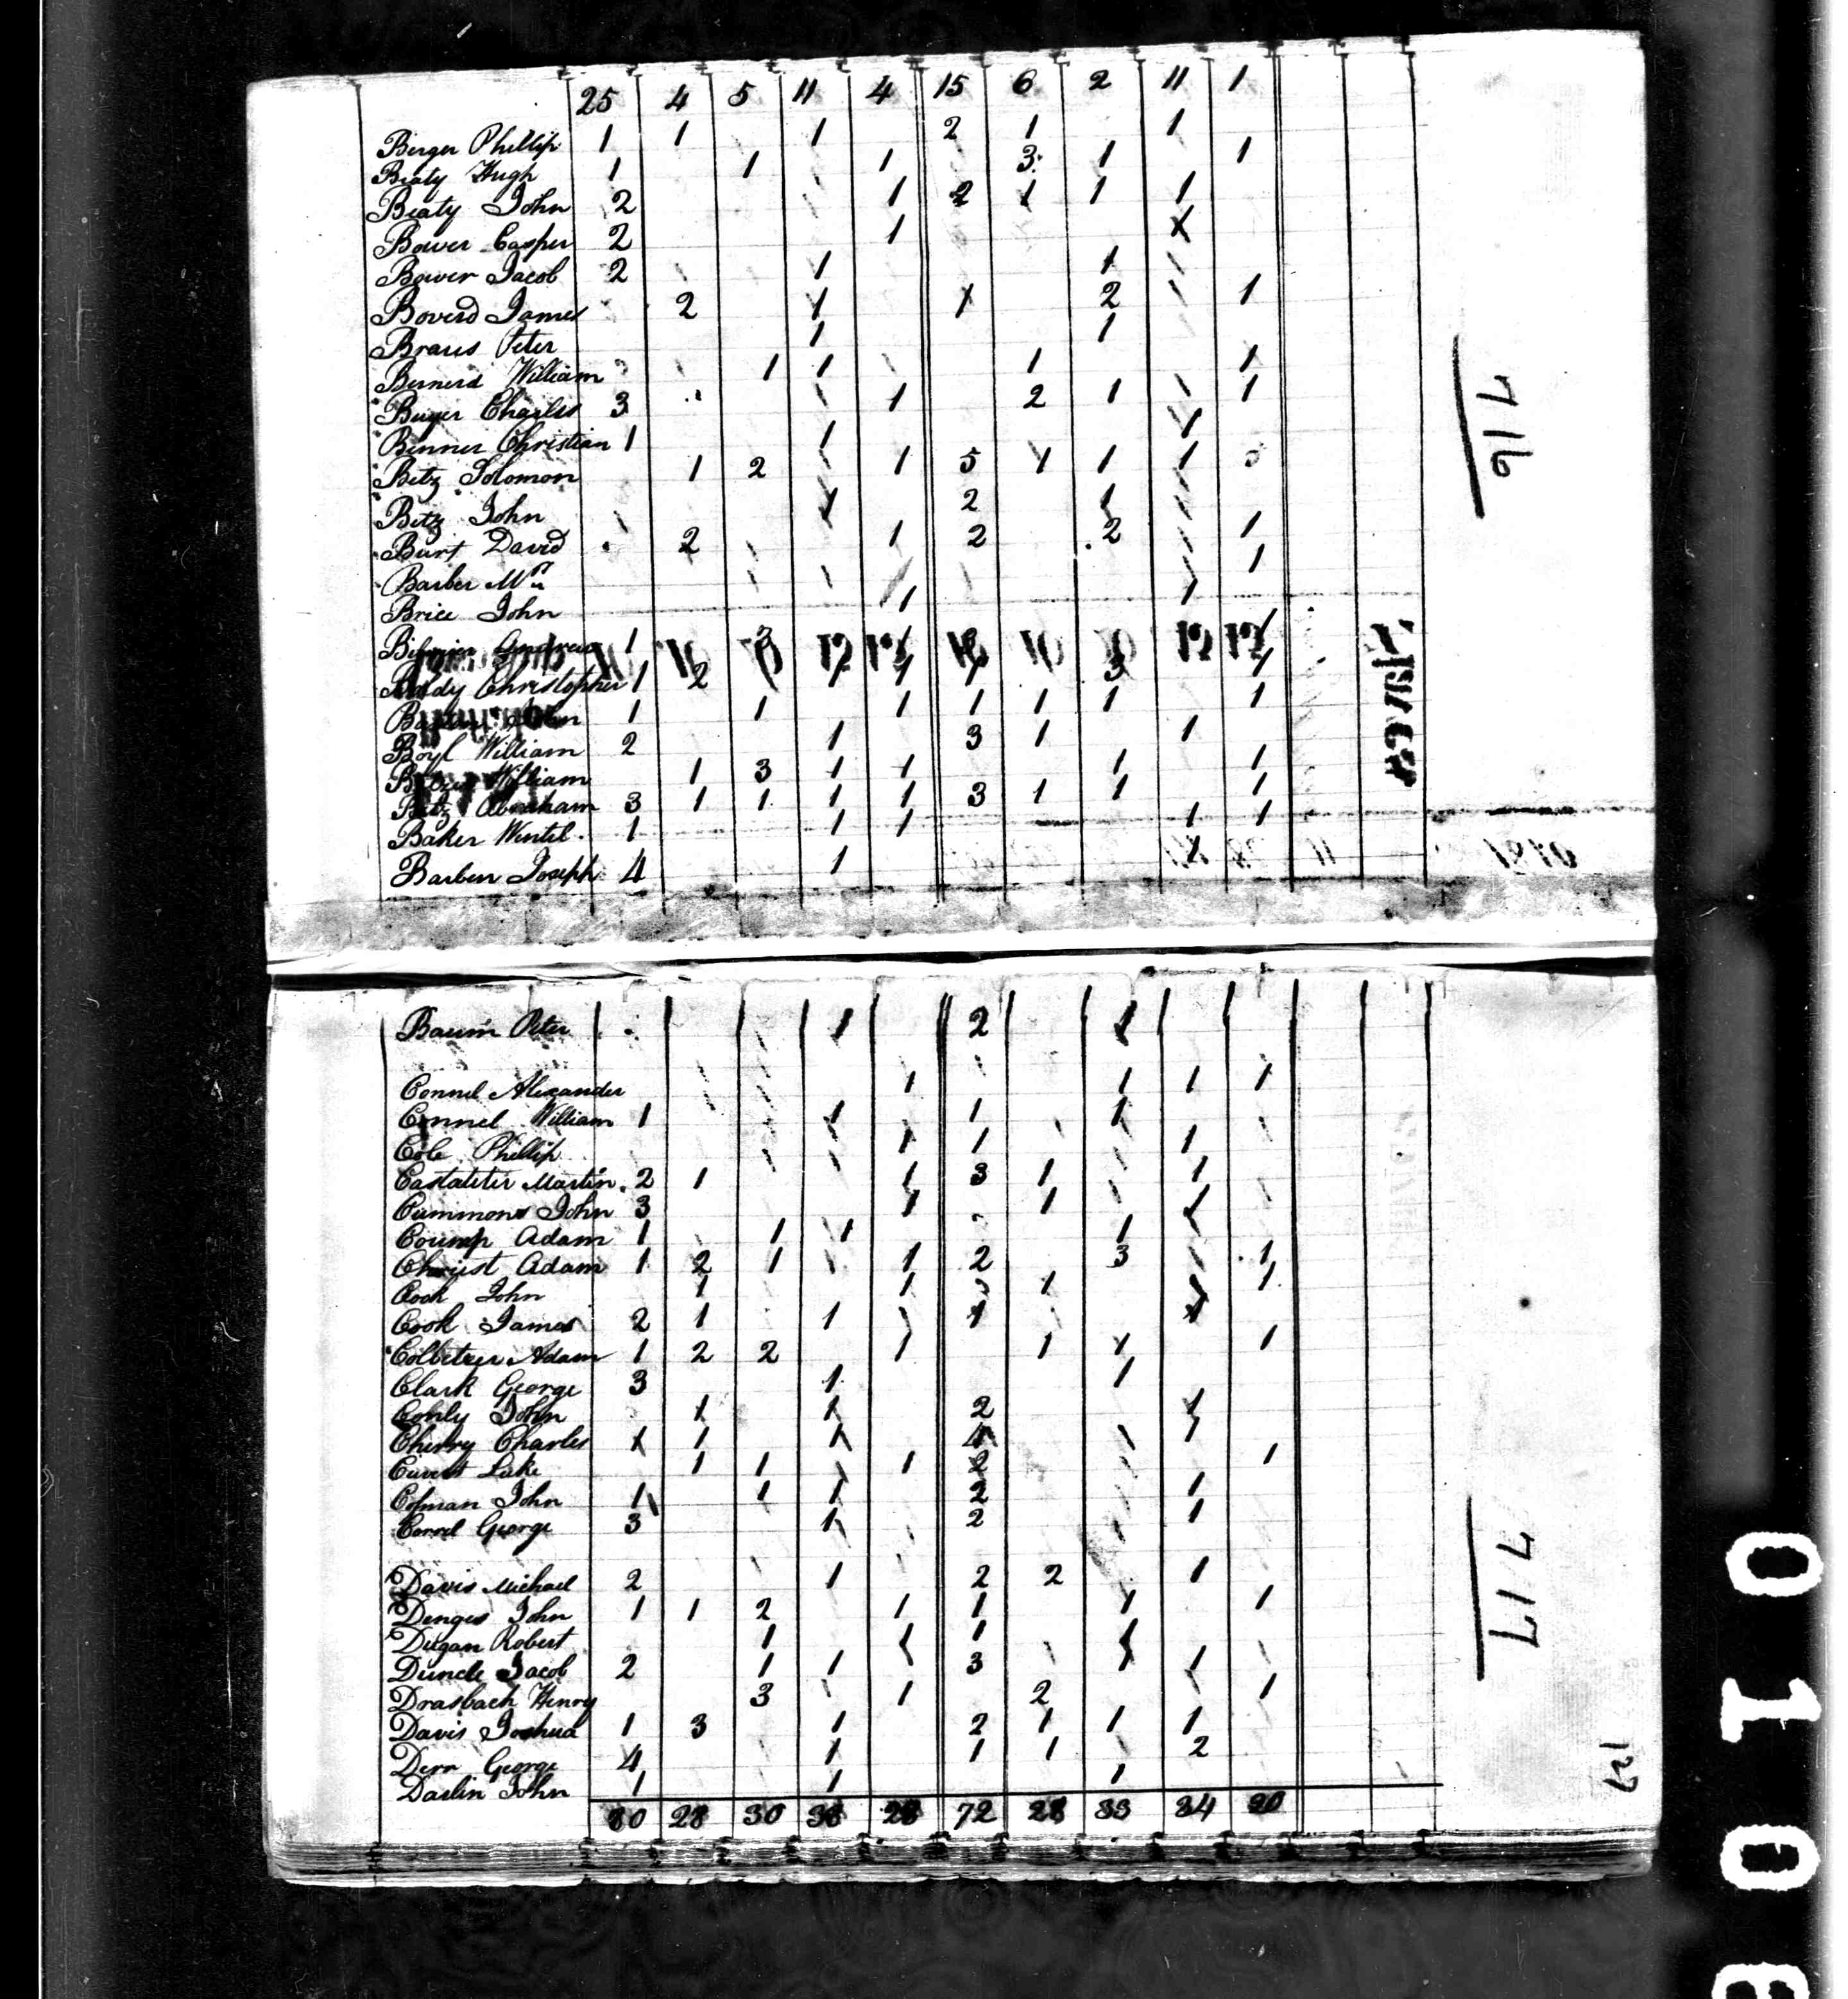 25 4 5 11 4 15 6 2 11 1
Berger Phillip 1 1 1 2 1 1
Beaty Hugh 1 1 1 3 1 1
Beaty John 2 1 2 1 1 1
Bower Casper 2 1 1
Bower Jacob 2 1 1
Boverd James 2 1 1 2 1
Braus Peter 1 1
Bernerd William 1 1 1 1
Buyer Charles 3 1 2 1 1
Benner Christian 1 1 1
Betz Solomon 1 2 1 5 1 1 1
Betz John 1 2 1
Burt David 2 1 2 2 1
Barber Wm 1
Brice John 1 1
Andrew 1
Christopher 1 2 1 1 3 1
1 1 1 1 1 1 1
Boyl William 2 1 3 1 1
William 1 3 1 1 1 1
Betz Abraham 3 1 1 1 1 3 1 1 1
Baker Wentel 1 1 1 1 1
Barben Joseph 4 1 1
716
Baum Peter 1 2 1
Connel Alexander 1 1 1 1
Connel William 1 1 1 1
Cole Phillip 1 1 1
Castateter Martin 2 1 1 3 1 1
Cummons John 3 1 1 1
Coump Adam 1 1 1 1
Christ Adam 1 2 1 1 2 3 1
Cook John 1 1 1 1 1
Cook James 2 1 1 1 1
Colbetzer Adam 1 2 2 1 1 1 1
Clark George 3 1 1
Conly John 1 1 2 1
Cherry Charles 1 1 1 4 1
Luke 1 1 1 2 1
Cofman John 1 1 1 2 1
Correl George 3 1 2 1
Davis Michael 2 1 2 2 1
Denges John 1 1 2 1 1 1 1
Dugan Robert 1 1 1 1
Duncle Jacob 2 1 1 3 1 1
Drasbach Henry 3 1 2 1
Davis Joshua 1 3 1 2 1 1 1
Derr George 4 1 1 1 2
Darlin John 1 1 1
80 28 30 38 28 72 28 33 34 20
717
127
0 1 0